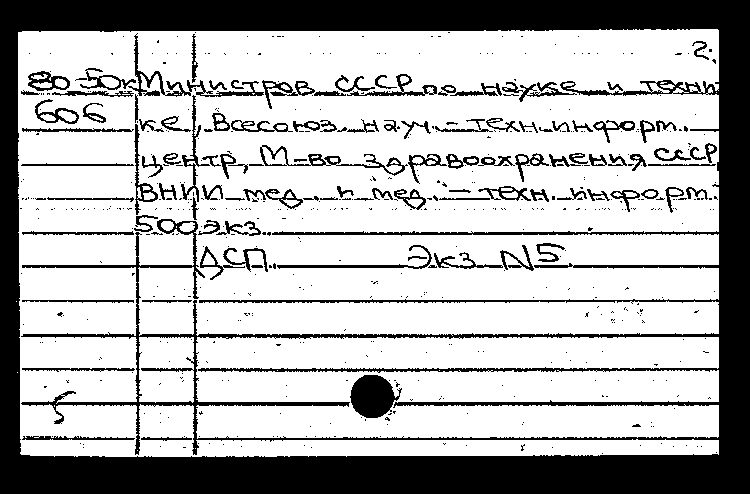 2.
80-50к Министров СССР по науке и техни
606 ке, Всесоюз. науч.-техн.информ.
центр, М-во здравоохранения СССР,
ВНИИ мед. и мед.-техн. информ.-
500экз.
ДСП. Экз N5.
5